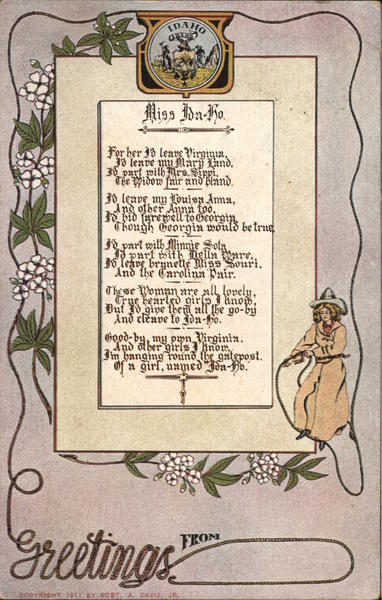 IDAHO
Miss Ida-Ho.
For her I'd leave Virginia,
I'd leave my Mary Land.
I'd part with Mrs. Sippi,
The Widow fair and bland.
I'd leave my Louisa Anna,
And other Anna too.
I'd bid farewell to Georgia
Though Georgia would be true.
I'd part with Minnie Sota
I'd part with Della Ware,
I'd leave brunette Miss Souri,
And the Carolina Pair.
These Woman are all lovely,
True hearted girls I know,
But I'd give them all the go-by
And cleave to Ida-Ho.
Good-by, my own Virginia.
And other girls I know,
I'm hanging 'round the gatepost
Of a girl, named "Ida-Ho."
Greetings
FROM
COPYRIGHT 1911 BY ROBT. A. DAVIS, JR.